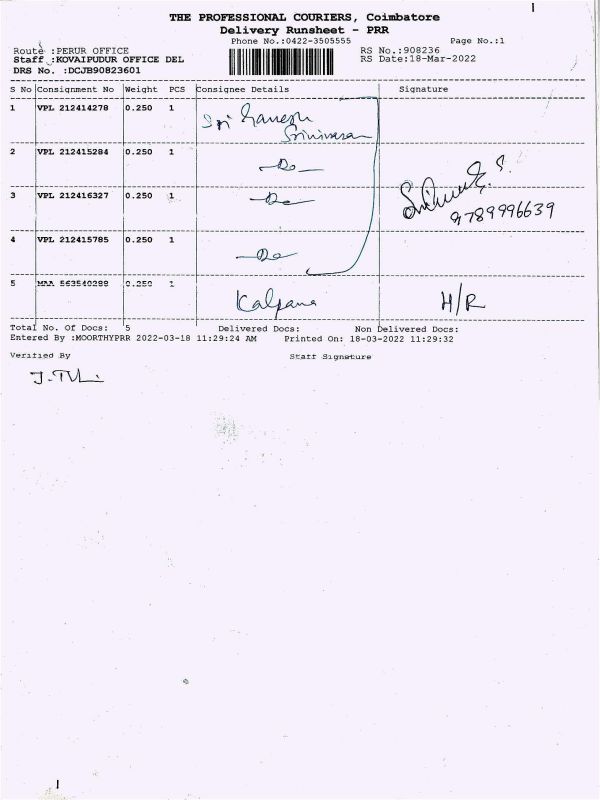 THE PROFESSIONAL COURIERS, Coimbatore
Delivery Runsheet - PRR
Phone No.:0422-3505555 Page No.:1
Route :PERUR OFFICE RS No.:908236
Staff :KOVAIPUDUR OFFICE DEL RS Date:18-Mar-2022
DRS No. :DCJB90823601
S No Consignment No Weight PCS Consignee Details Signature
1 VPL 212414278 0.250 1 Sri Ganesh
Srinivasan
2 VPL 212415284 0.250 1 -Do-
3 VPL 212416327 0.250 1 -Do-
9789996639
4 VPL 212415785 0.250 1 -Do-
5 MAA 563540288 0.250 1 Kalpana H/R
Total No. Of Docs: 5 Delivered Docs: Non Delivered Docs:
Entered By :MOORTHYPRR 2022-03-18 11:29:24 AM Printed On: 18-03-2022 11:29:32
Verified By Staff Signature